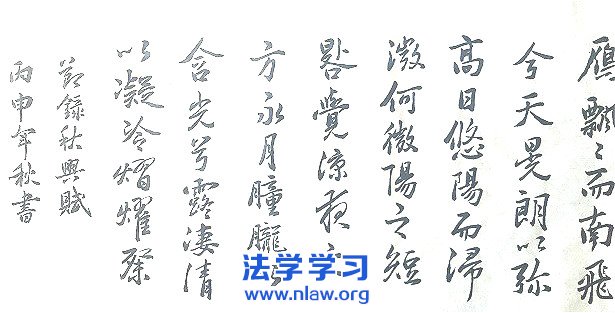 鴈飄〻而南飛
兮天晃朗以弥
高日悠陽而浸
微何微陽之短
晷覺涼夜之
方永月朣朧以
含光兮露凄清
以凝冷熠耀粲
節錄秋興賦
丙申年秋書
法学学习
www.nlaw.org